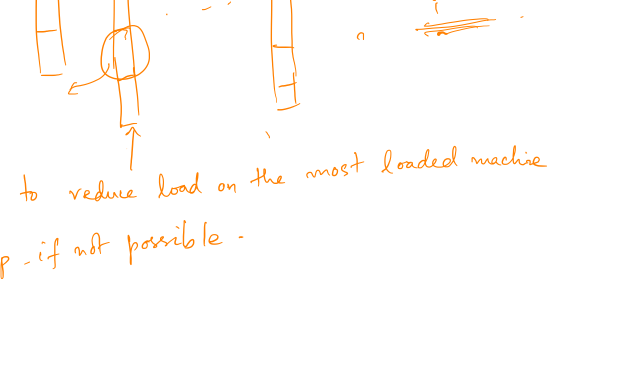 to reduce load on the most loaded machine
p - if not possible.